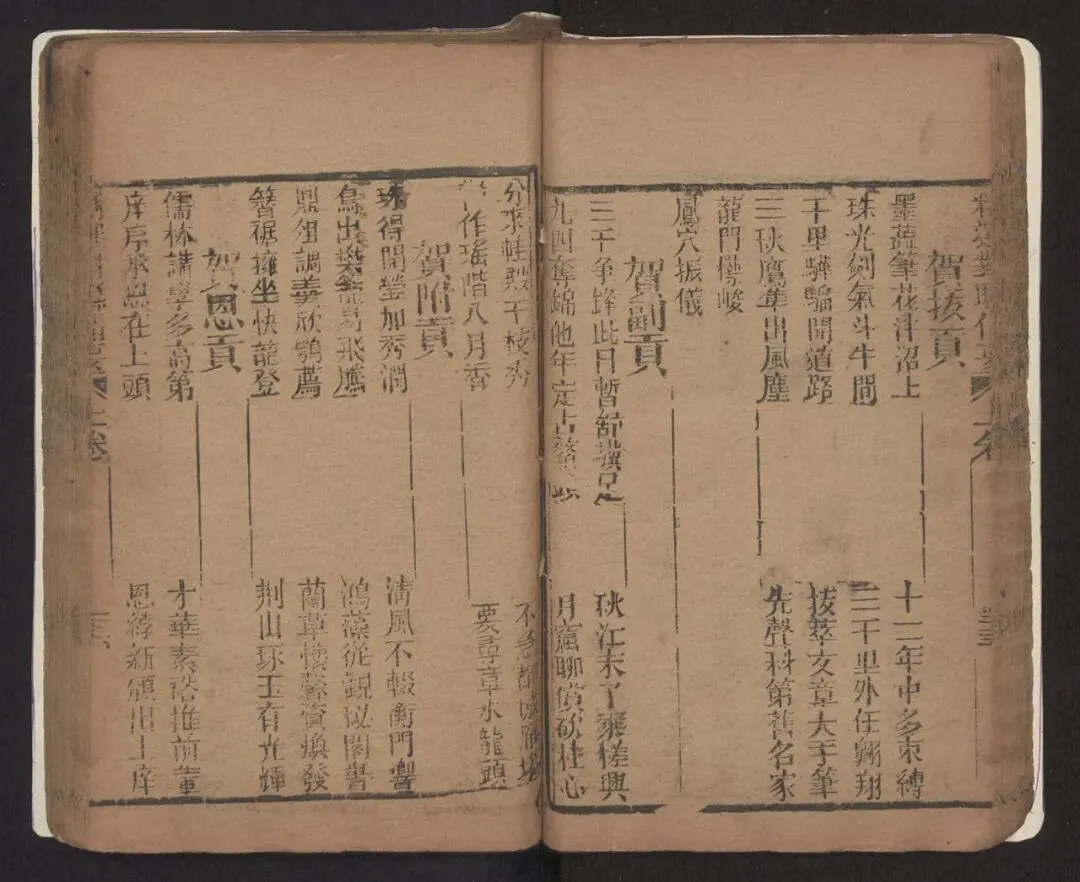 上卷
賀拔貢
墨蘸筆花沼上
十二年中多束縛
珠光劍氣斗牛間
三千里外任翱翔
千里驊騮開道路
拔萃文章大手筆
三秋鷹隼出風塵
先聲科第舊名家
龍門標峻
鳳穴振儀
賀副貢
三千争鋒此日暫
秋江未了乘槎興
九四奪錦他年定占
月窟聊償砍桂心
分來桂殿千枝秀
不
作瑤階八月香
要尋章水龍頭
賀附貢
珠得開瑩加秀潤
清風不輟衡門
鳥出樊籠易飛騰
鴻藻從觀秘閣書
鼎俎調羹欣鶚薦
蘭草懷馨資煥發
簪裾擁坐快龍登
荆山琢玉有光輝
賀恩貢
儒林講學多高第
才華素裕推前輩
庠序承恩在上頭
恩綍新頒出上庠
上卷